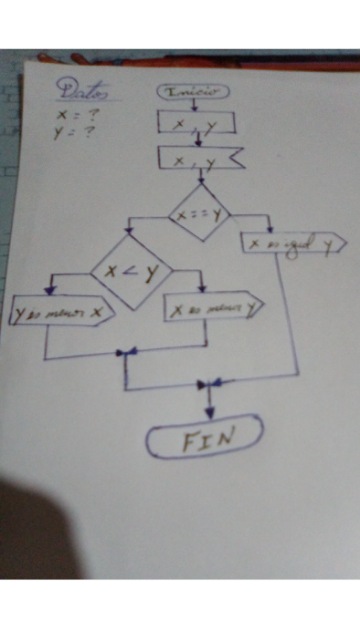 Datos
x = ?
y = ?
Inicio
x, y
x, y
x == y
x es igual y
x < y
y es menor x
x es menor y
FIN